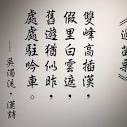 雙峰高插漢，
假里白雲遮，
舊遊猶似昨，
處處駐吟車。
——吳濁流，漢詩